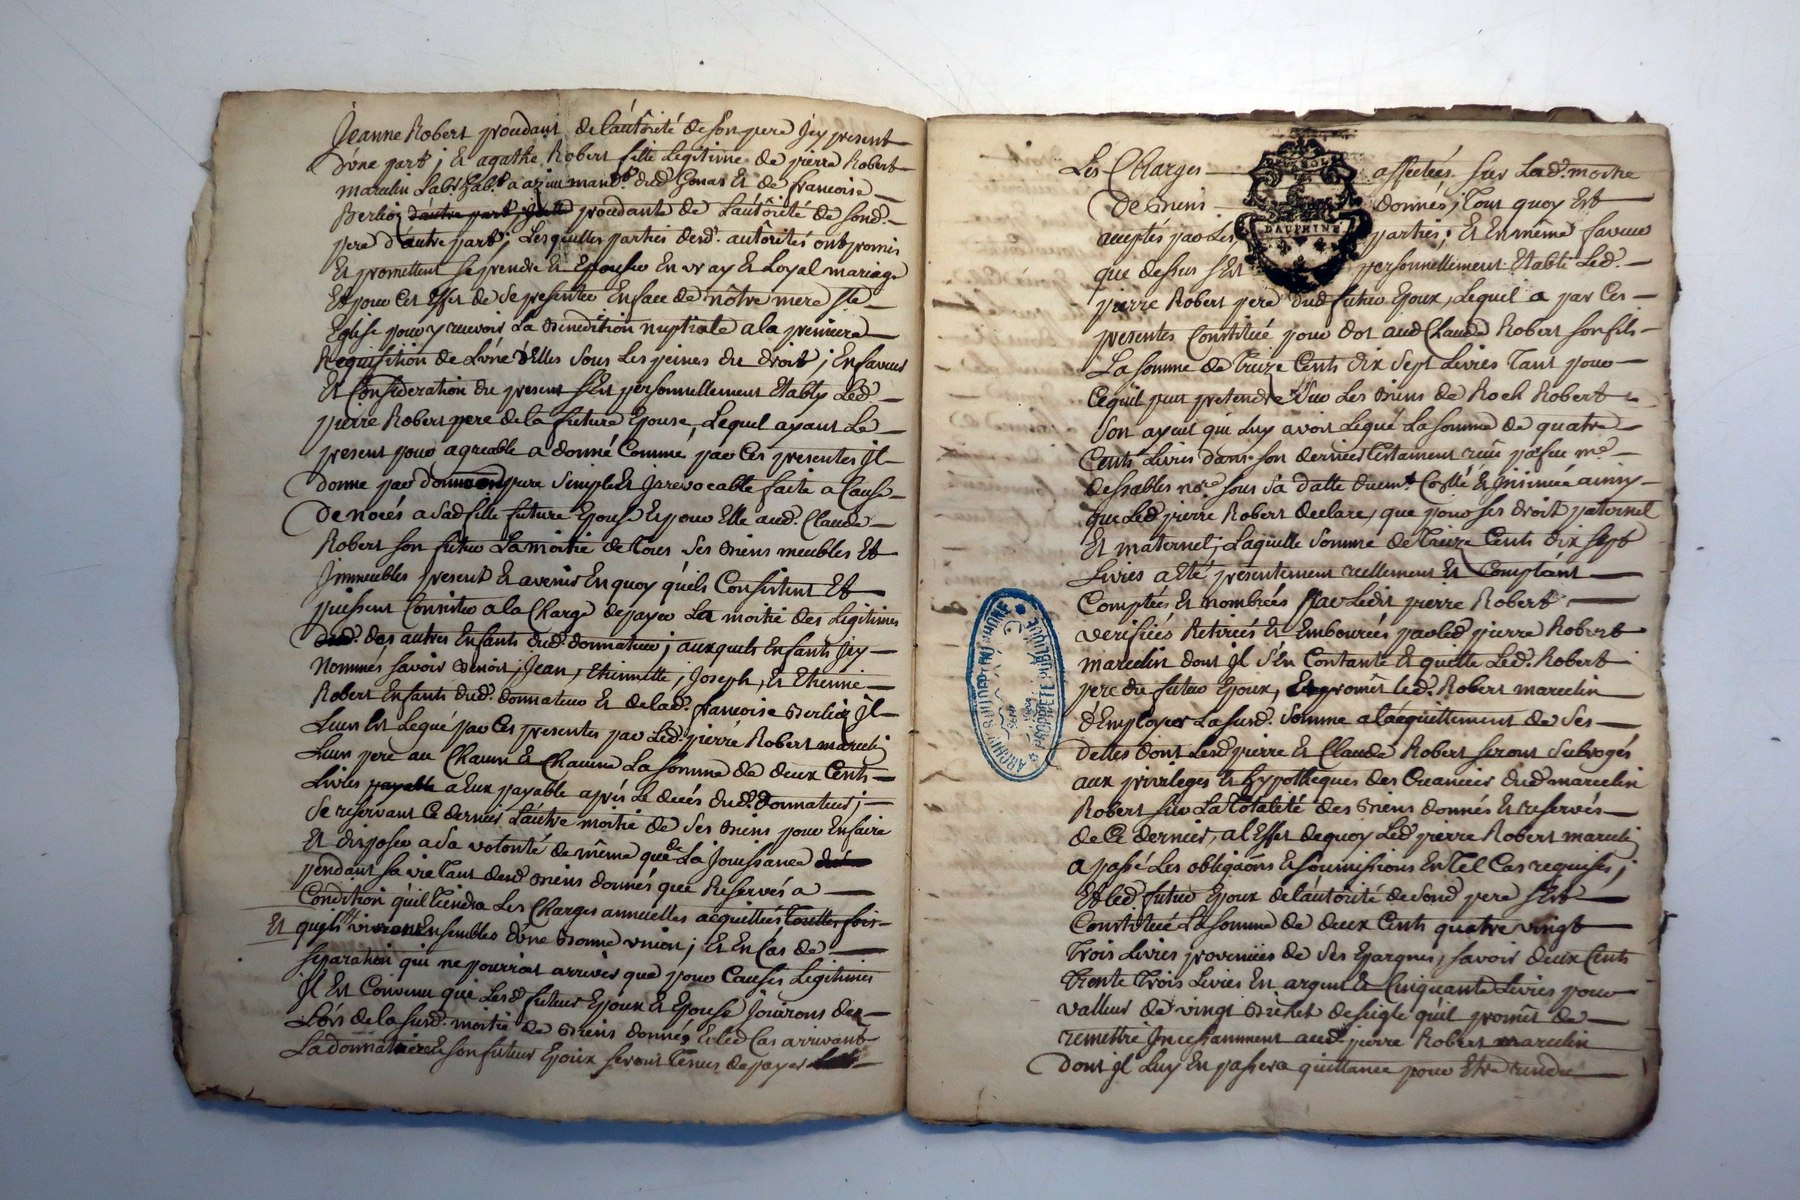 Jeanne Robert procedant de l'autorité de son pere Jcy present
d'une part; Et agathe Robert fille Legitime de pierre Robert
marcelin Lab.r hab.t a mand.t dud. Et de francoise
Berlioz d'autre part, procedante de L'autôrité de sond.
pere d'autre part; Lesquelles parties desd. autôrités ont promis
Et promettent se prendre Et Epouser En vray Et Loyal mariage
Et pour Cet Effet de se presenter En face de nôtre mere Ste
Eglise pour y recevoir La Benediction nuptiale a la premiere
Requisition de L'une d'Elles sous Les peines du droit; En faveur
Et Consideration du present s'Est personnellement Etably Led.
pierre Robert pere de la future Epouse, Lequel ayant Le
present pour agreable a donné Comme par Ces presentes Jl
donne par donnaon pure simple Et Jrrevocable faite a Cause
de noces a sad. fille future Epouse Et pour Elle aud. Claude
Robert son futur La moitié de tous ses Biens meubles Et
Jmmeubles present Et avenir En quoy qu'ils Consistent Et
puissent Consister a la Charge de payer La moitié des Legitimes
des autres Enfants dud. donnateur; auxquels Enfants Jcy
Nommés savoir Benoit, Jean, Ethiennette, Joseph, Et Etienne
Robert Enfants dud. donnateur Et de lad. francoise Berlioz Jl
Leur Est Legué par Ces presentes par Led. pierre Robert marcelin
Leur pere au Chacun Et Chacune La somme de deux Cents
Livres payable a Eux payable aprés Le decés dud. donnateur;
Se reservant Ce dernier L'autre moitié de ses Biens pour En faire
Et disposer a sa volonté de même que de La Jouissance
pendant sa vie tant desd. Biens donnés que Reservés a
Condition qu'il tiendra Les Charges annuelles acquittées toutes fois
Et qu'ils vivront Ensembles d'une Bonne union; Et En Cas de
separation qui ne pourrat arriver que pour Causes Legitimes
Jl Est Convenu que Lesd. futeur Epoux Et Epouse Jouirons des
Lors de la susd. moitié de Biens donnés Et led. Cas arrivant
La donnataire Et son futeur Epoux seront tenus de payer
Les Charges affectées sur Lad. moitié
de Biens donnés; Tout quoy Est
accepté par Les parties; Et En même faveur
que dessus s'Est personnellement Etabli Led.
pierre Robert pere dud. futur Epoux, Lequel a par Ces
presentes Constitué pour dot aud. Claude Robert son fils
La somme de Treize Cents dix sept Livres tant pour
Ce qu'il peut pretendre sur Les Biens de Roch Robert
son ayeul qui Luy avoit Legué La somme de quatre
Cents Livres dans son dernier testament reçu par feu me.
dessables no.re sous sa datte duem.t Collé Et Jnsinué ainsy
que Led. pierre Robert declare, que pour ses droit paternel
Et maternel, Laquelle somme de Treize Cents dix sept
Livres a Eté presentement reellement Et Comptant
Comptées Et nombrées par Ledit pierre Robert
verifiées Retirées Et Embourcées par led. pierre Robert
marcelin dont Jl s'En Contante Et quitte Led. Robert
pere du futur Epoux, Et promet led. Robert marcelin
d'Employer La susd. somme a l'acquittement de ses
dettes dont Lesd. pierre Et Claude Robert seront subrogés
aux privileges Et hypotheques des Creanciers dud. marcelin
Robert sur La totalité des Biens donnés Et reservés
de Ce dernier, a L'Effet de quoy Led. pierre Robert marcelin
a passé Les obligaons Et soumissions En tel Cas requises;
Et led. futur Epoux de l'autôrité de sond. pere s'Est
Constitué La somme de deux Cents quatre vingt
trois Livres provenües de ses Epargnes, savoir deux Cents
trente trois Livres En argent Et Cinquante Livres pour
valleur de vingt Bichet de seigle qu'il promet de
remettre Jncessamment aud. pierre Robert marcelin
dont Jl Luy En passera quittance pour Etre rendu
DAUPHINE
ARCHIV